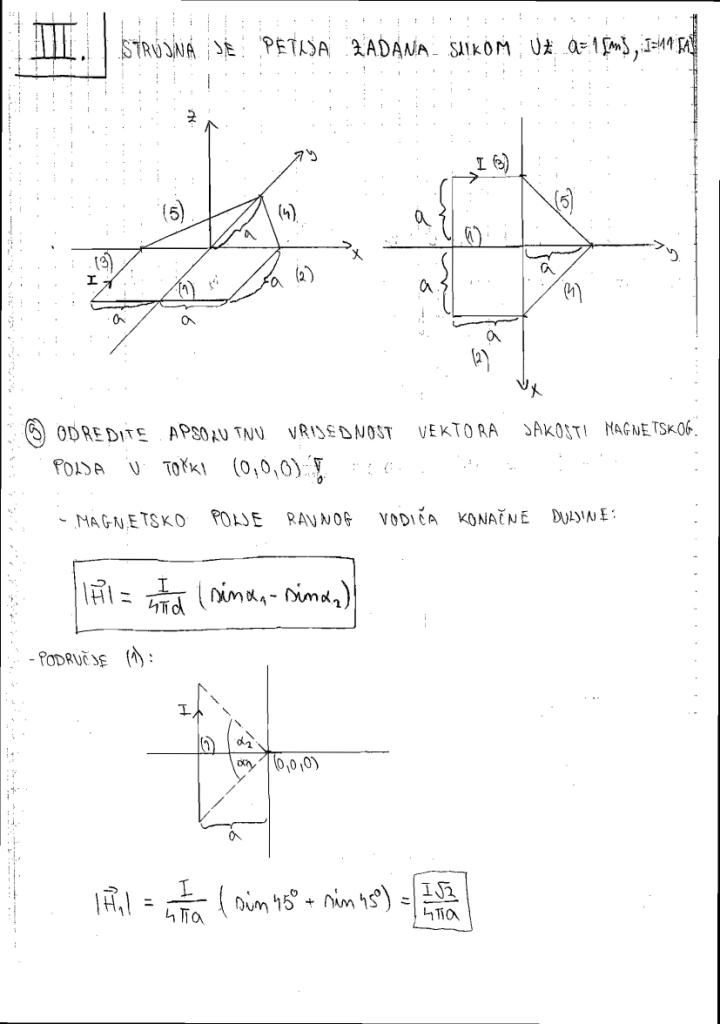 III.
STRUJNA JE PETLJA ZADANA SLIKOM UZ a=1[m], I=11[A]
z
y
x
(5)
(4)
a
(3)
I
(1)
(2)
a
a
a
I (3)
a
(5)
(1)
y
a
a
(4)
a
(2)
x
⑤ ODREDITE APSOLUTNU VRIJEDNOST VEKTORA JAKOSTI MAGNETSKOG
POLJA U TOČKI (0,0,0)
- MAGNETSKO POLJE RAVNOG VODIČA KONAČNE DULJINE:
|H⃗| = I/4πd (sinα₁ - sinα₂)
- PODRUČJE (1):
I
(1)
α₂
α₁
(0,0,0)
a
|H⃗₁| = I/4πa (sin45° + sin45°) = I√2/4πa